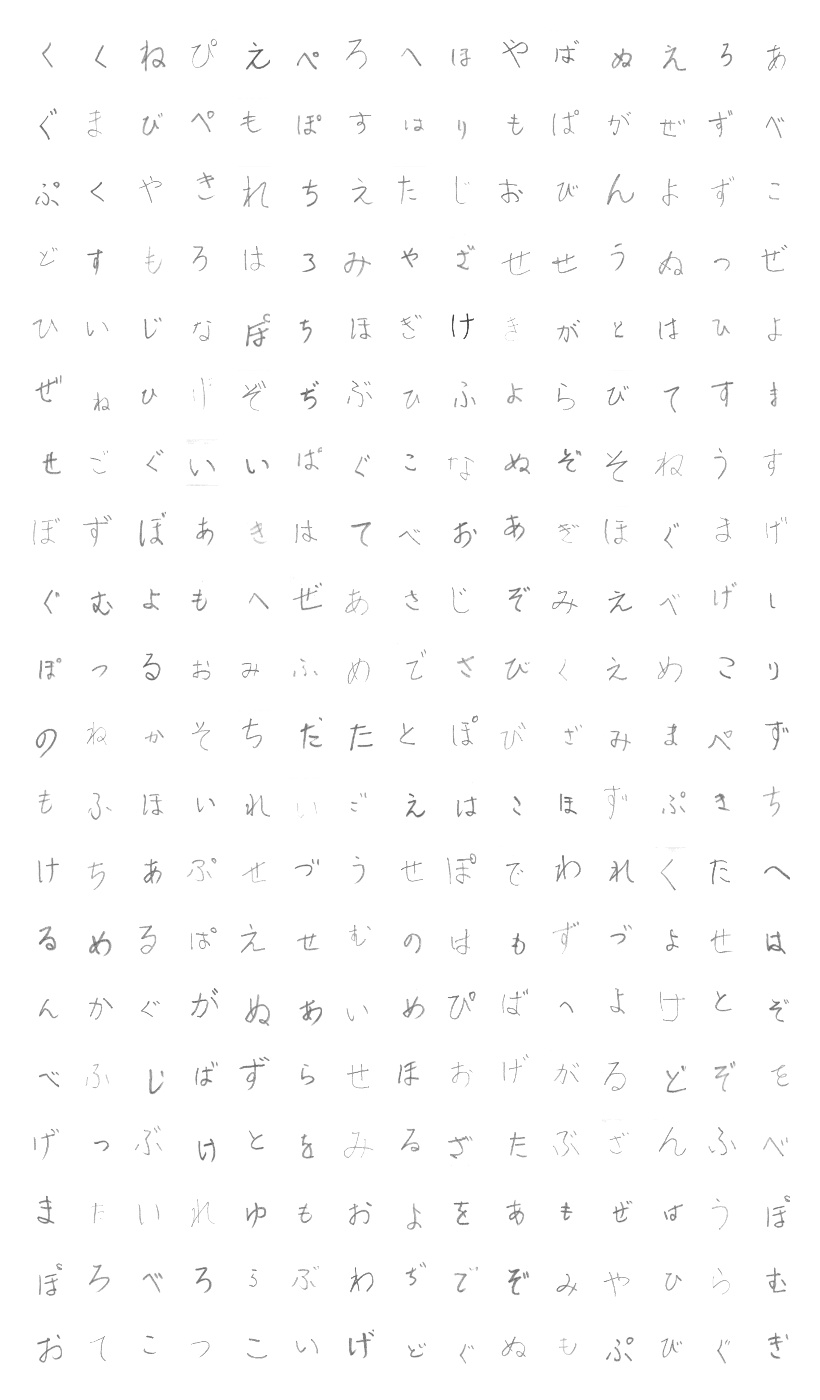 くくねぴえぺろへほやばぬえろあ
ぐまびぺもぽすはりもぱがぜずべ
ぷくやきれちえたじおびんよずこ
どすもろはろみやざせせうぬっぜ
ひいじなぽちほぎけきがとはひよ
ぜねひりぞぢぶひふよらびてすま
せごぐいいぱぐこなぬぞそねうす
ぼずぼあきはてべおあぎほぐまげ
ぐむよもへぜあさじぞみえべげし
ぽつるおみふめでさびくえめこり
のねかそちだたとぽびざみまぺず
もふほいれいごえはこほずぷきち
けちあぷせづうせぽでわれくたへ
るめるぱえせむのはもずづよせは
んかぐがぬあいめぴばへよけとぞ
べふじばずらせほおげがるどぞを
げつぶけとをみるざたぶざんふべ
またいれゆもおよをあもぜはうぽ
ぽろべろぅぶわぢでぞみやひらむ
おてこつこいげどぐぬもぷびぐぎ